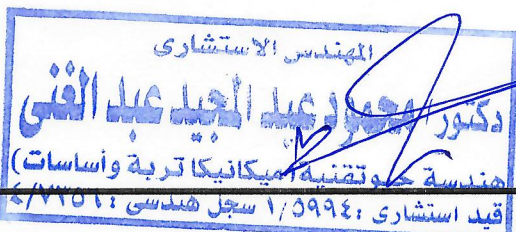 المهندس الاستشارى
دكتور / محمود عبد المجيد عبد الغنى
هندسة جيوتقنية (ميكانيكا تربة وأساسات)
قيد استشارى : ١/٥٩٩٤ سجل هندسى : ٤/٧٣٥٦